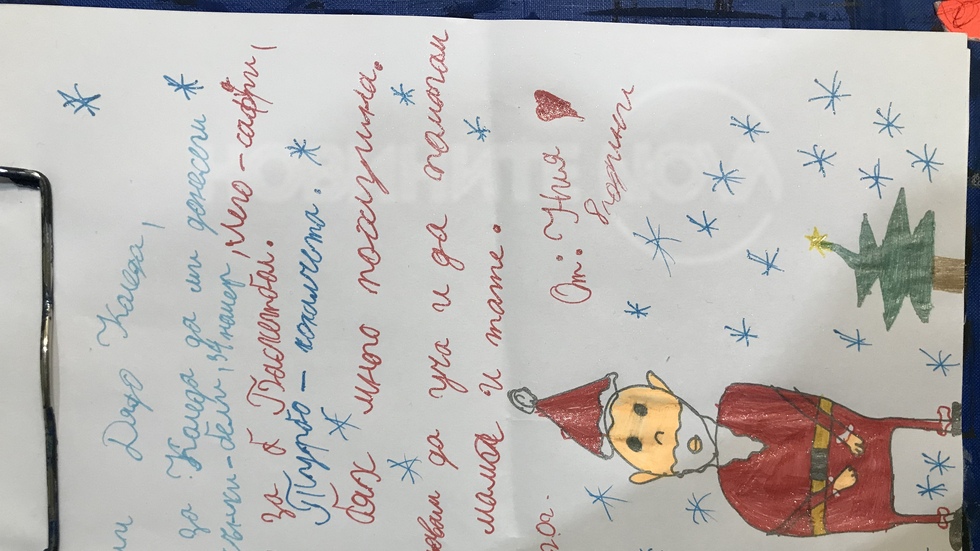 ли Дядо Коледа,
за Коледа да ми донесеш
кънки-бели, 34 номер, Лего-сафри,
за б Баскетбол.
Турбо - кокалчета.
бях много послушна.
да уча и да помагам
мама и тате.
20г.
От: Ния
8 годинки